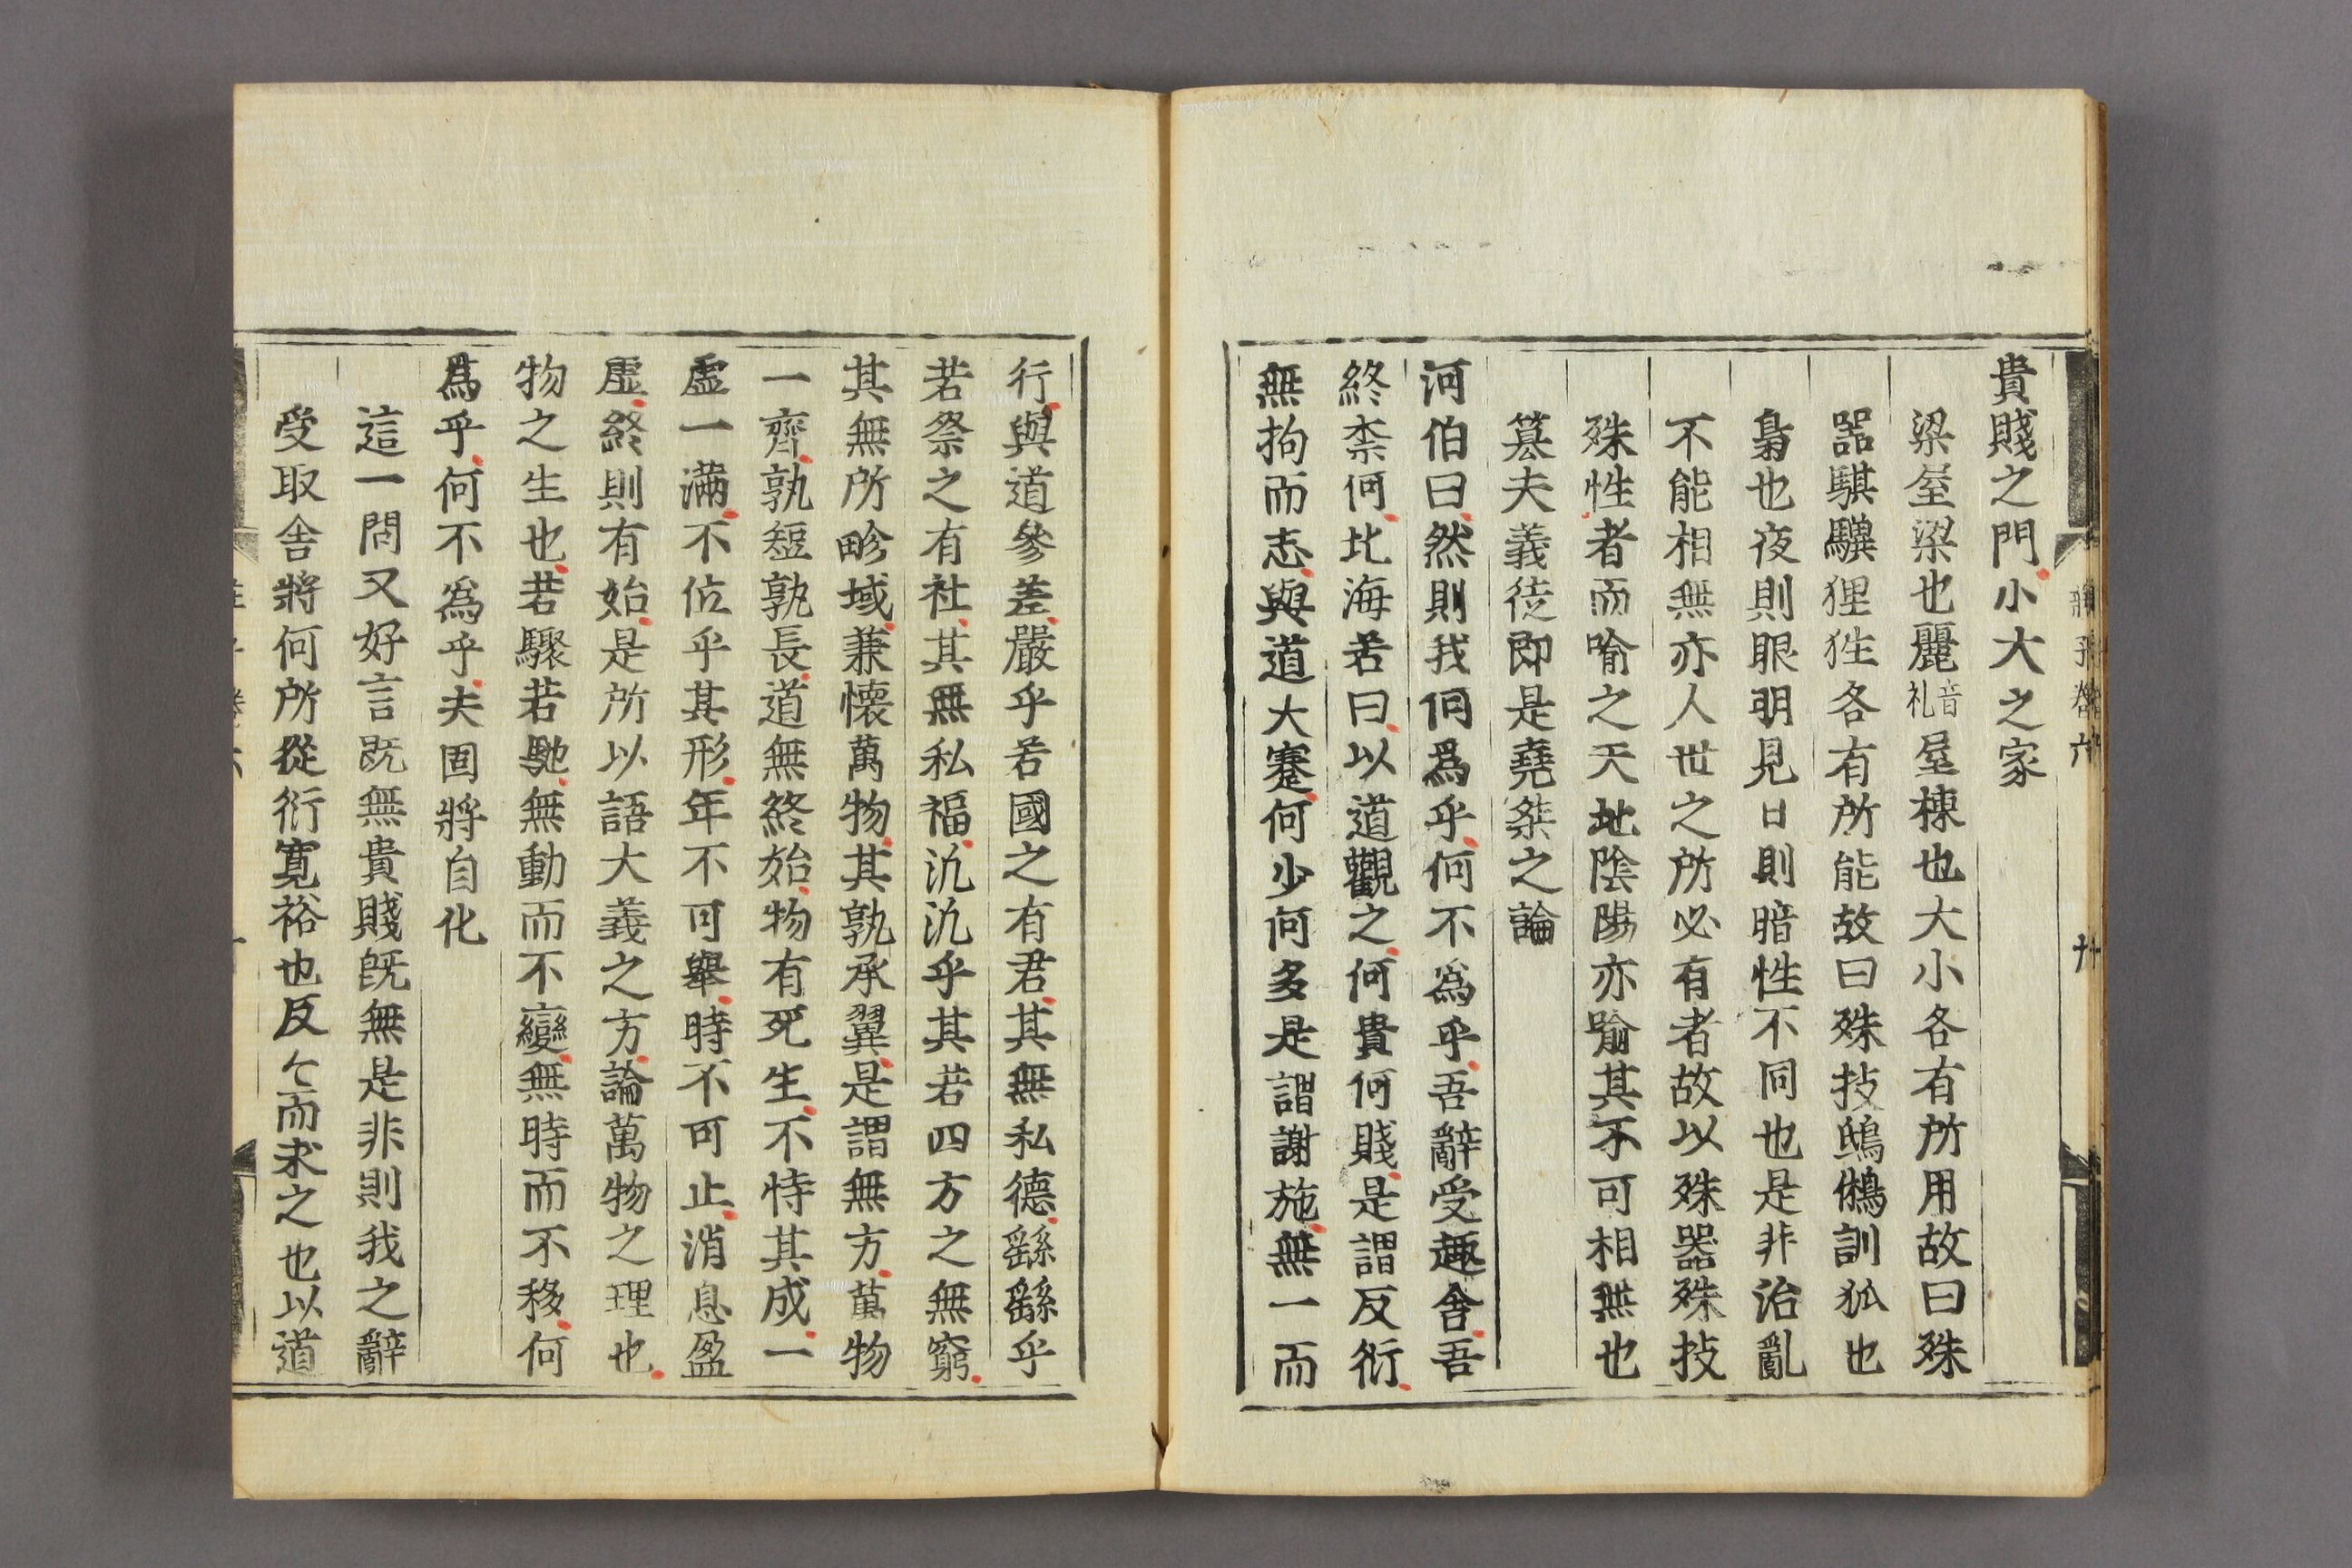 貴賤之門小大之家
梁屋梁也麗音礼屋棟也大小各有所用故曰殊
器騏驥狸狌各有所能故曰殊技鴟鵂訓狐也
梟也夜則眼明見日則暗性不同也是非治亂
不能相無亦人世之所必有者故以殊器殊技
殊性者而喻之天地陰陽亦喻其不可相無也
篡夫義徒即是堯桀之論
河伯曰然則我何爲乎何不爲乎吾辭受趣舍吾
終柰何北海若曰以道觀之何貴何賤是謂反衍
無拘而志與道大蹇何少何多是謂謝施無一而
行與道參差嚴乎若國之有君其無私德繇繇乎
若祭之有社其無私福氿氿乎其若四方之無窮
其無所畛域兼懷萬物其孰承翼是謂無方萬物
一齊孰短孰長道無終始物有死生不恃其成一
虛一滿不位乎其形年不可舉時不可止消息盈
虛終則有始是所以語大義之方論萬物之理也
物之生也若驟若馳無動而不變無時而不移何
爲乎何不爲乎夫固將自化
這一問又好言既無貴賤既無是非則我之辭
受取舍將何所從衍寬裕也反々而求之也以道